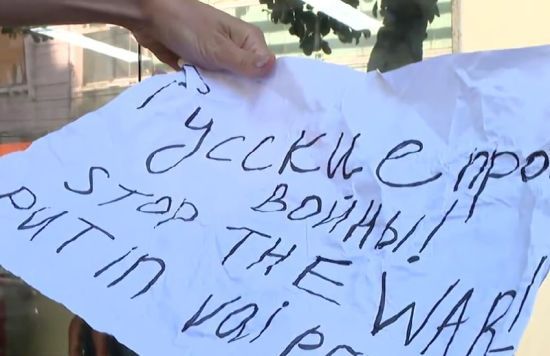 Русские про
войны!
STOP THE WAR!
PUTIN vai